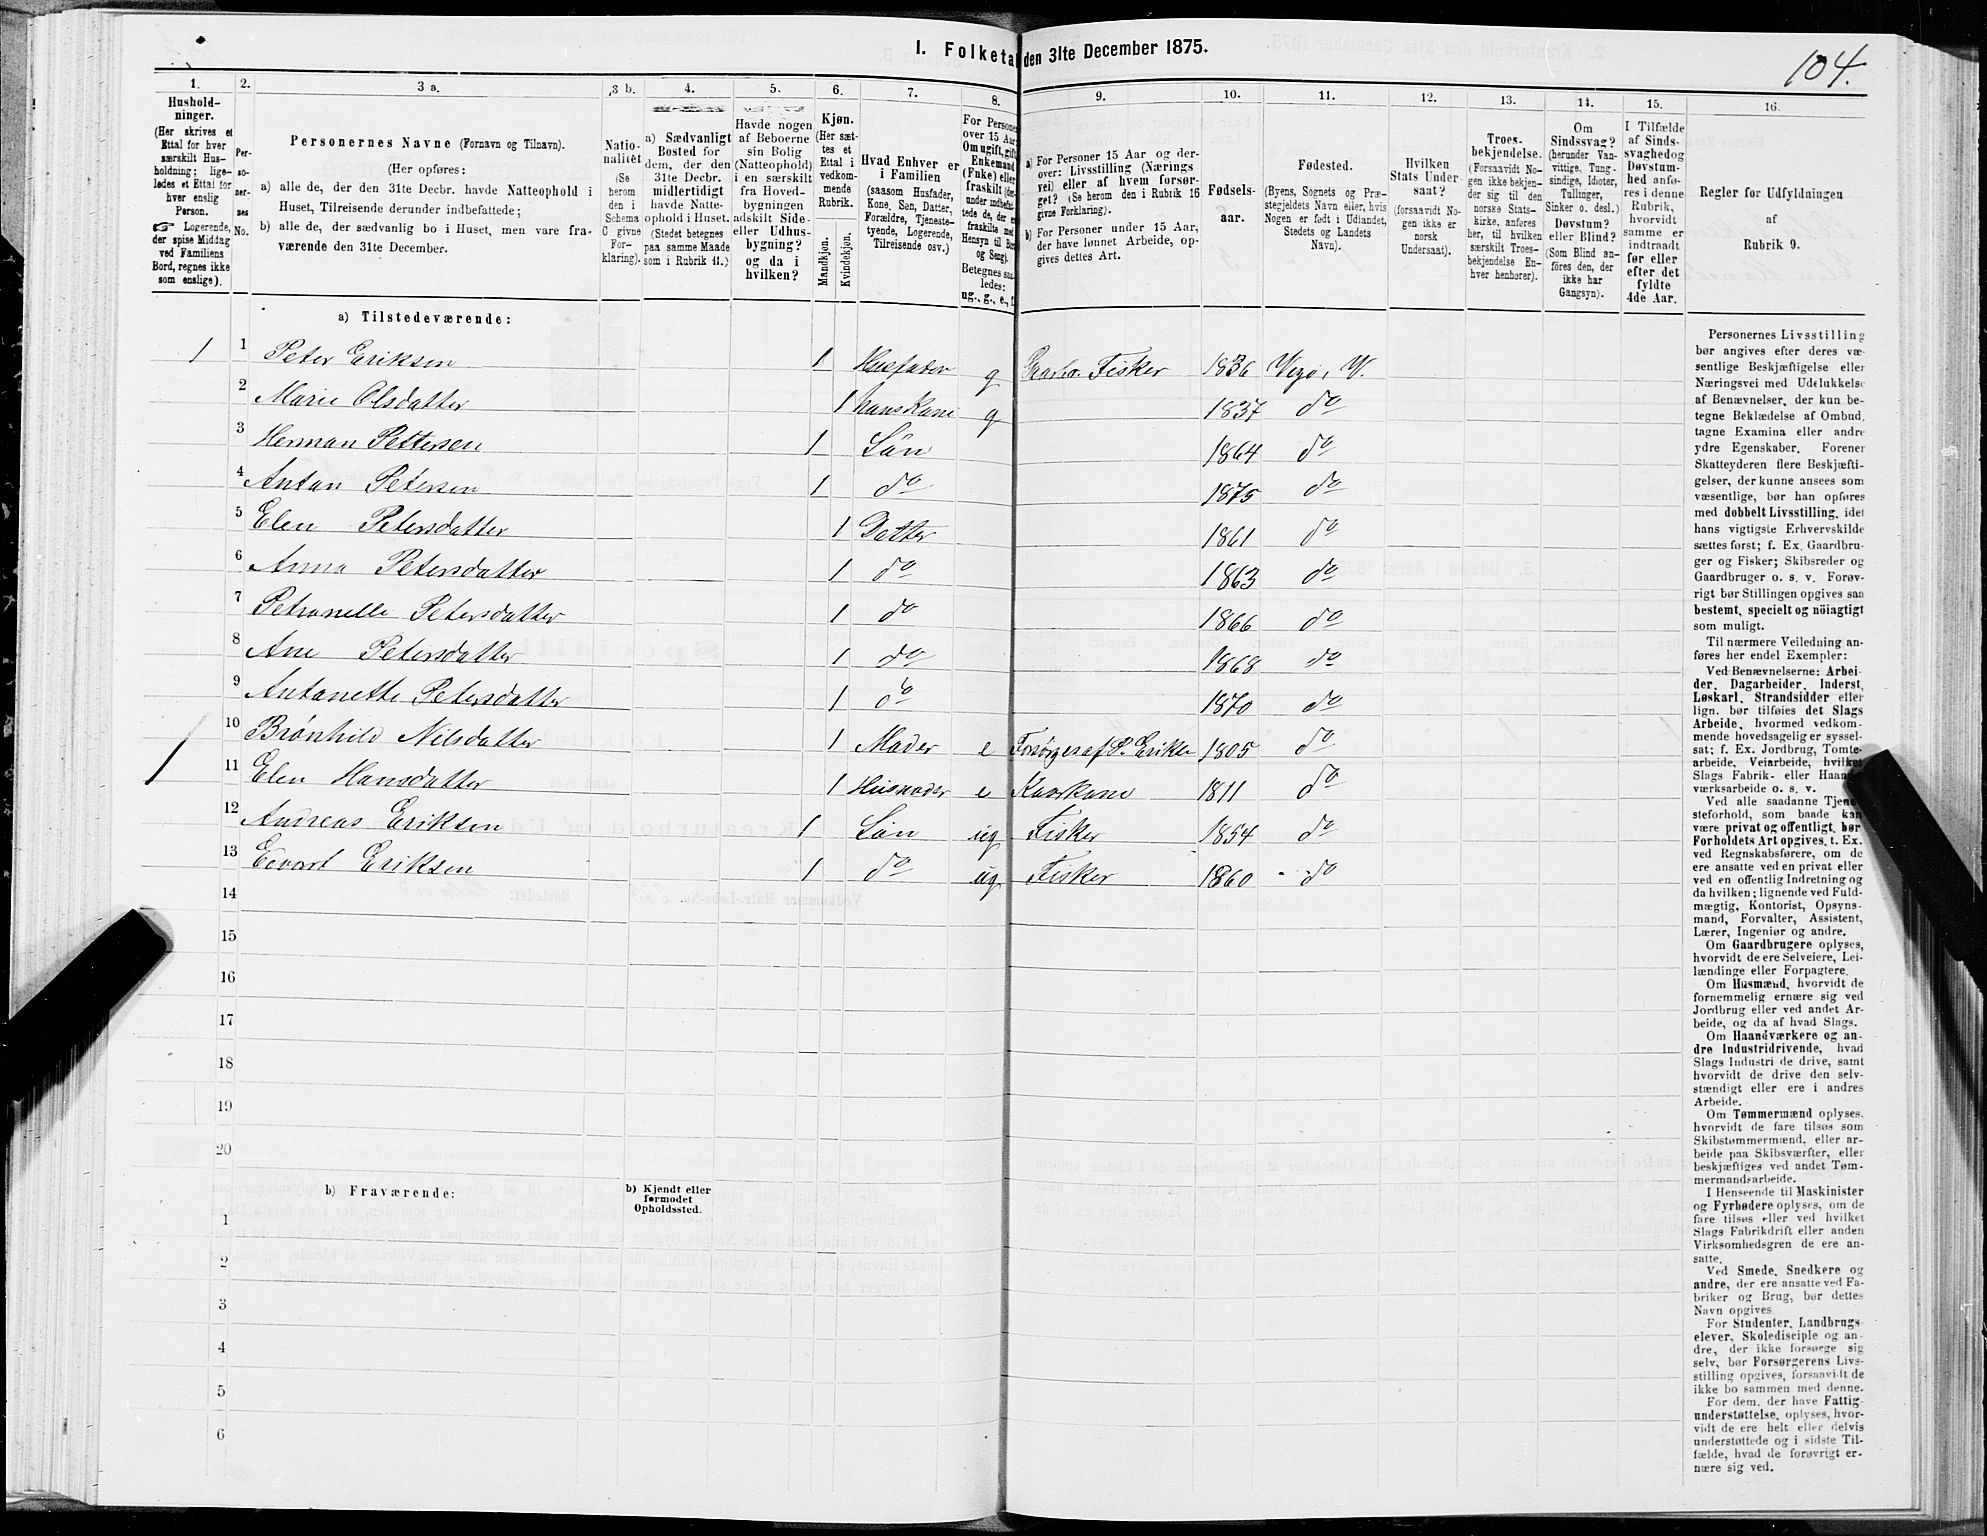 I. Folketal den 31te December 1875.
104.
1.
Hushold-
ninger.
(Her skrives et
Ettal for hver
særskilt Hus-
holdning; lige-
ledes et Ettal for
hver enslig
Person.
☞ Logerende,
der spise Middag
ved Familiens
Bord, regnes ikke
som enslige).
2.
Per-
so-
ner-
nes
No.
3 a.
Personernes Navne (Fornavn og Tilnavn).
(Her opføres:
a) alle de, der den 31te Decbr. havde Natteophold i
Huset, Tilreisende derunder indbefattede;
b) alle de, der sædvanlig bo i Huset, men vare fra-
værende den 31te December.
3 b.
Natio-
nalitet
(Se
herom
den i
Schema
C givne
For-
klaring).
4.
a) Sædvanligt
Bosted for
dem, der den
31te Decbr.
midlertidigt
havde Natte-
ophold i Huset.
(Stedet betegnes
paa samme Maade
som i Rubrik 11.)
5.
Havde nogen
af Beboerne
sin Bolig
(Natteophold)
i en særskilt
fra Hoved-
bygningen
adskilt Side-
eller Udhus-
bygning?
og da i
hvilken?
6.
Kjøn.
(Her sæt-
tes et
Ettal i
vedkom-
mende
Rubrik.
Mandkjøn.
Kvindekjøn.
7.
Hvad Enhver er
i Familien
(saasom Husfader,
Kone, Søn, Datter,
Forældre, Tjeneste-
tyende, Logerende,
Tilreisende osv.)
8.
For Personer
over 15 Aar:
Om ugift, gift,
Enkemand
(Enke) eller
fraskilt (der-
under indbefat-
tede de, der ere
fraskilte med
Hensyn til Bord
og Seng).
Betegnes saa-
ledes:
ug., g., e., f.
9.
a) For Personer 15 Aar og der-
over: Livsstilling (Nærings
vei) eller af hvem forsør-
get? (Se herom den i Rubrik 16
givne Forklaring).
b) For Personer under 15 Aar,
der have lønnet Arbeide, op-
gives dettes Art.
10.
Fødsels-
aar.
11.
Fødested.
(Byens, Sognets og Præ-
stegjeldets Navn eller, hvis
Nogen er født i Udlandet,
Stedets og Landets
Navn).
12.
Hvilken
Stats Under-
saat?
(forsaavidt No-
gen ikke er
norsk
Undersaat).
13.
Troes-
bekjendelse.
(Forsaavidt No-
gen ikke bekjen-
der sig til den
norske Stats-
kirke, anføres
her, til hvilken
særskilt Troes-
bekjendelse En-
hver henhører).
14.
Om
Sindssvag?
(herunder Van-
vittige, Tung-
sindige, Idioter,
Tullinger,
Sinker o. desl.)
Døvstum?
eller Blind?
(Som Blind an-
føres den, der
ikke har
Gangsyn).
15.
I Tilfælde
af Sinds-
svaghed og
Døvstum-
hed anfø-
res i denne
Rubrik,
hvorvidt
samme er
indtraadt
før eller
efter det
fyldte
4de Aar.
16.
Regler for Udfyldningen
af
Rubrik 9.
a) Tilstedeværende:
1 1 Peter Eriksen 1 Husfader g Gaardbr. Fisker 1836 Vegø, V.
2 Marie Olsdatter 1 hans Kone g 1837 do
3 Herman Pettersen 1 Søn 1864 do
4 Antan Petersen 1 do 1875 do
5 Elen Petersdatter 1 Datter 1861 do
6 Anna Petersdatter 1 do 1863 do
7 Petronelle Petersdatter 1 do 1866 do
8 Ane Petersdatter 1 do 1868 do
9 Antanette Petersdatter 1 do 1870 do
10 Brønhild Nilsdatter 1 Moder e Forsørges af P. Erikse 1805 do
1 11 Elen Hansdatter 1 Husmoder e Kaarkone 1811 do
12 Andreas Eriksen 1 Søn ug Fisker 1854 do
13 Edvart Eriksen 1 do ug Fisker 1860 do
14
15
16
17
18
19
20
b) Fraværende:
b) Kjendt eller
formodet
Opholdssted.
1
2
3
4
5
6
Personernes Livsstilling
bør angives efter deres væ-
sentlige Beskjæftigelse eller
Næringsvei med Udelukkelse
af Benævnelser, der kun be-
tegne Beklædelse af Ombud,
tagne Examina eller andre
ydre Egenskaber. Forener
Skatteyderen flere Beskjæfti-
gelser, der kunne ansees som
væsentlige, bør han opføres
med dobbelt Livsstilling, idet
hans vigtigste Erhvervskilde
sættes først; f. Ex. Gaardbru-
ger og Fisker; Skibsreder og
Gaardbruger o. s. v. Forøv-
rigt bør Stillingen opgives saa
bestemt, specielt og nöiagtigt
som muligt.
Til nærmere Veiledning an-
føres her endel Exempler:
Ved Benævnelserne: Arbei-
der, Dagarbeider, Inderst,
Løskarl, Strandsidder eller
lign. bør tilføies det Slags
Arbeide, hvormed vedkom-
mende hovedsagelig er syssel-
sat; f. Ex. Jordbrug, Tomte-
arbeide, Veiarbeide, hvilket
Slags Fabrik- eller Haand-
værksarbeide o. s. v.
Ved alle saadanne Tjene-
steforhold, som baade kan
være privat og offentligt, bør
Forholdets Art opgives, t. Ex.
ved Regnskabsførere, om de
ere ansatte ved en privat eller
ved en offentlig Indretning og
da hvilken; lignende ved Fuld-
mægtig, Kontorist, Opsyns-
mand, Forvalter, Assistent,
Lærer, Ingeniør og andre.
Om Gaardbrugere oplyses,
hvorvidt de ere Selveiere, Lei-
lændinge eller Forpagtere.
Om Husmænd, hvorvidt de
fornemmelig ernære sig ved
Jordbrug eller ved andet Ar-
beide, og da af hvad Slags.
Om Haandværkere og an-
dre Industridrivende, hvad
Slags Industri de drive, samt
hvorvidt de drive den selv-
stændigt eller ere i andres
Arbeide.
Om Tømmermænd oplyses,
hvorvidt de fare tilsøs som
Skibstømmermænd, eller ar-
beide paa Skibsværfter, eller
beskjæftiges ved andet Tøm-
mermandsarbeide.
I Henseende til Maskinister
og Fyrbødere oplyses, om de
fare tilsøs eller ved hvilket
Slags Fabrikdrift eller anden
Virksomhedsgren de ere an-
satte.
Ved Smede, Snedkere og
andre, der ere ansatte ved Fa-
briker og Brug, bør dettes
Navn opgives.
For Studenter, Landbrugs-
elever, Skoledisciple og an-
dre, der ikke forsørge sig
selv, bør Forsørgerens Livs-
stilling opgives, forsaavidt de
ikke bo sammen med denne.
For dem, der have Fattig-
understøttelse, oplyses, hvor-
vidt de ere helt eller delvis
understøttede og i sidste Til-
fælde, hvad de forøvrigt er-
nære sig ved.